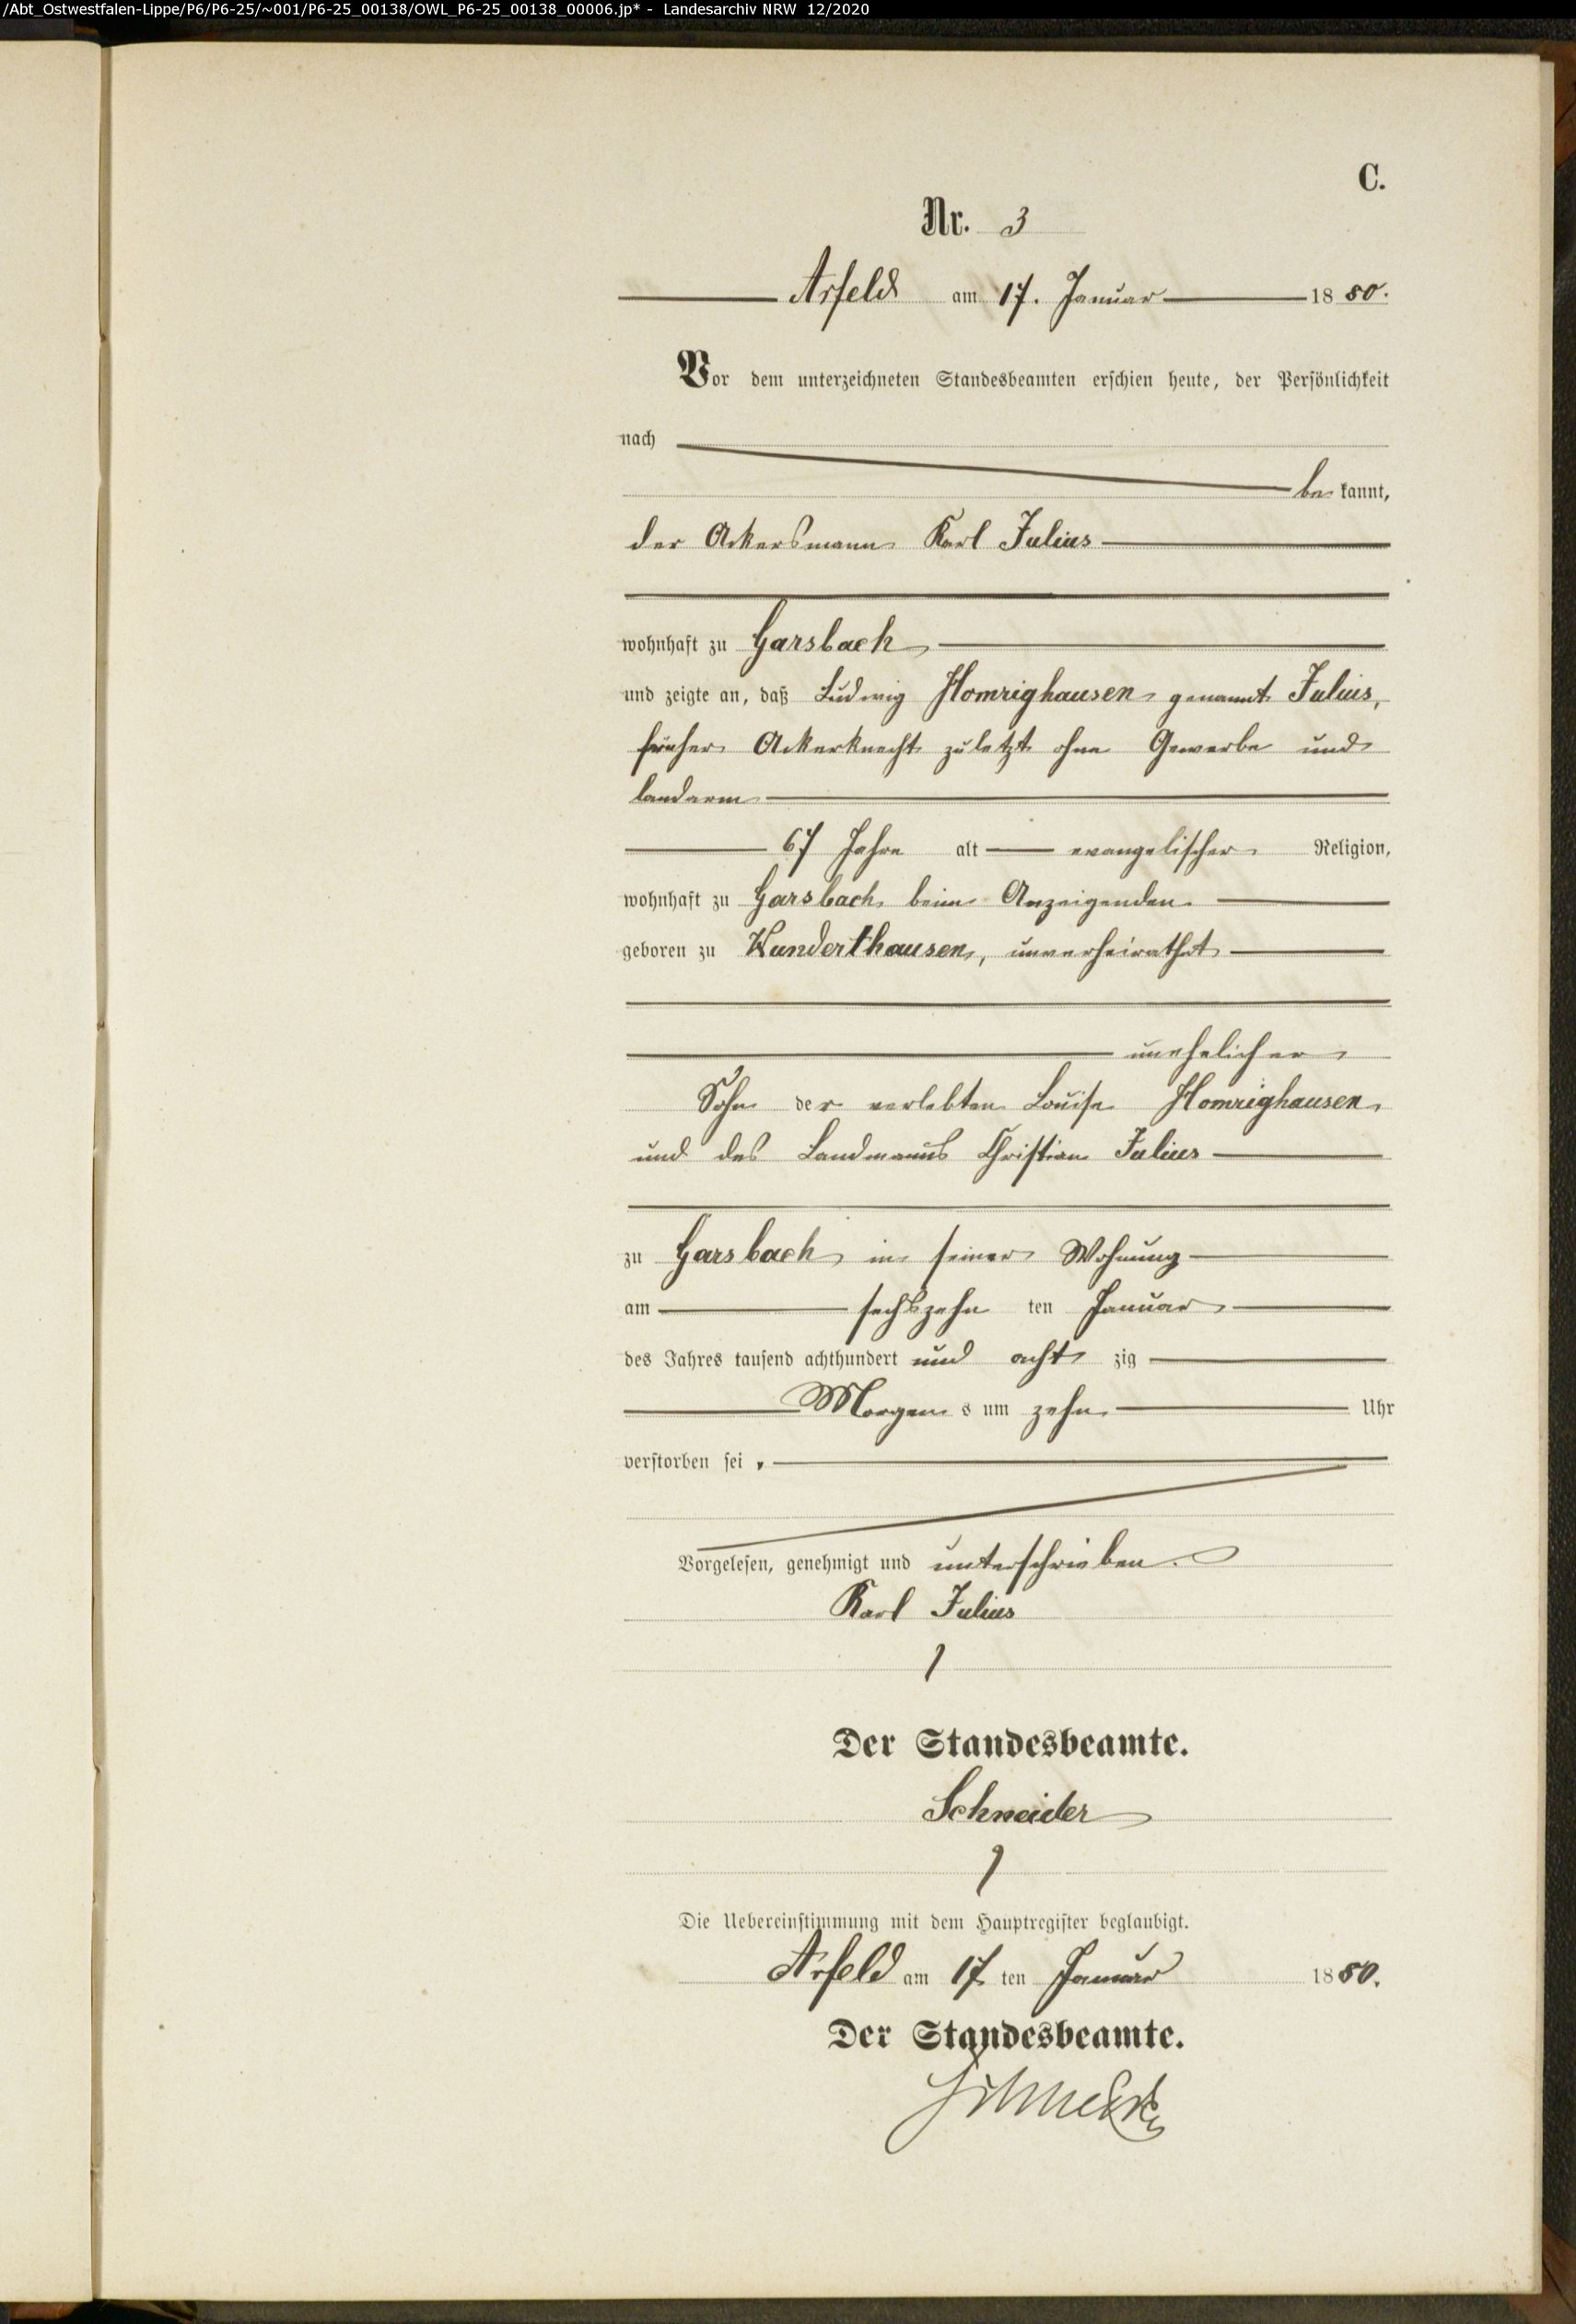 /Abt_Ostwestfalen-Lippe/P6/P6-25/~001/P6-25_00138/OWL_P6-25_00138_00006.jp* - Landesarchiv NRW 12/2020
C.
Nr. 3
Arfeld am 17. Januar 1880.
Vor dem unterzeichneten Standesbeamten erschien heute, der Persönlichkeit
nach
bekannt,
der Ackersmann Karl Julius
wohnhaft zu Garsbach
und zeigte an, daß Ludwig Homrighausen genannt Julius,
früher Ackerknecht zuletzt ohne Gewerbe und
landarm
67 Jahre alt evangelischer Religion,
wohnhaft zu Garsbach beim Anzeigenden
geboren zu Wunderthausen, unverheirathet
unehelicher
Sohn der verlebten Louise Homrighausen
und des Landmanns Christian Julius
zu Garsbach in seiner Wohnung
am sechszehnten Januar
des Jahres tausend achthundert und achtzig
Morgens um zehn Uhr
verstorben sei.
Vorgelesen, genehmigt und unterschrieben.
Karl Julius
Der Standesbeamte.
Schneider
Die Uebereinstimmung mit dem Hauptregister beglaubigt.
Arfeld am 17ten Januar 1880.
Der Standesbeamte.
Schneider